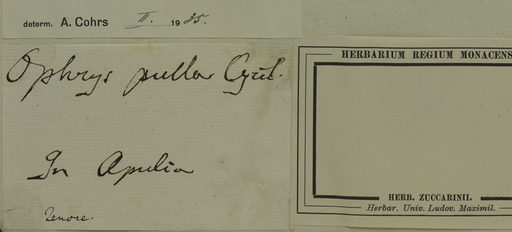 determ. A. Cohrs II. 1925.
Ophrys pulla Cyril.
In Apulia
Tenore.
HERBARIUM REGIUM MONACENS
HERB. ZUCCARINII.
Herbar. Univ. Ludov. Maximil.